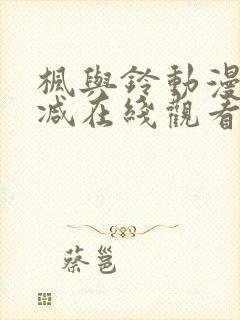 楓與鈴動漫
减在綫觀看
蔡邕